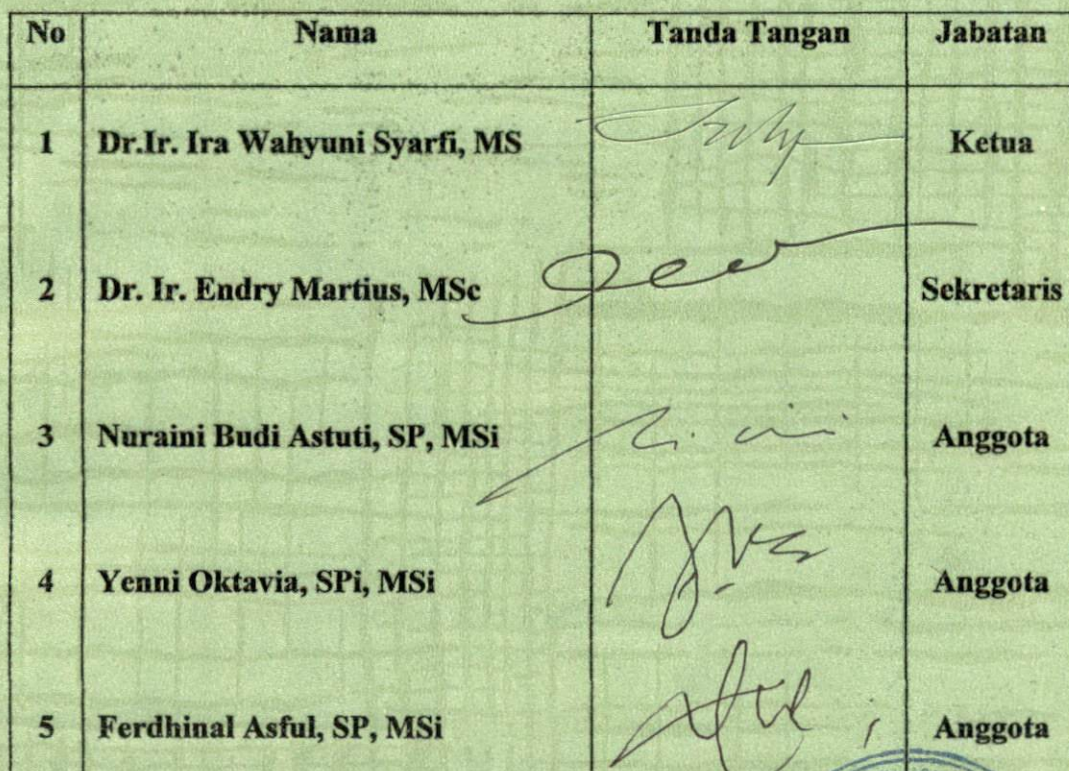 No Nama Tanda Tangan Jabatan
1 Dr.Ir. Ira Wahyuni Syarfi, MS Ketua
2 Dr. Ir. Endry Martius, MSc Sekretaris
3 Nuraini Budi Astuti, SP, MSi Anggota
4 Yenni Oktavia, SPi, MSi Anggota
5 Ferdhinal Asful, SP, MSi Anggota